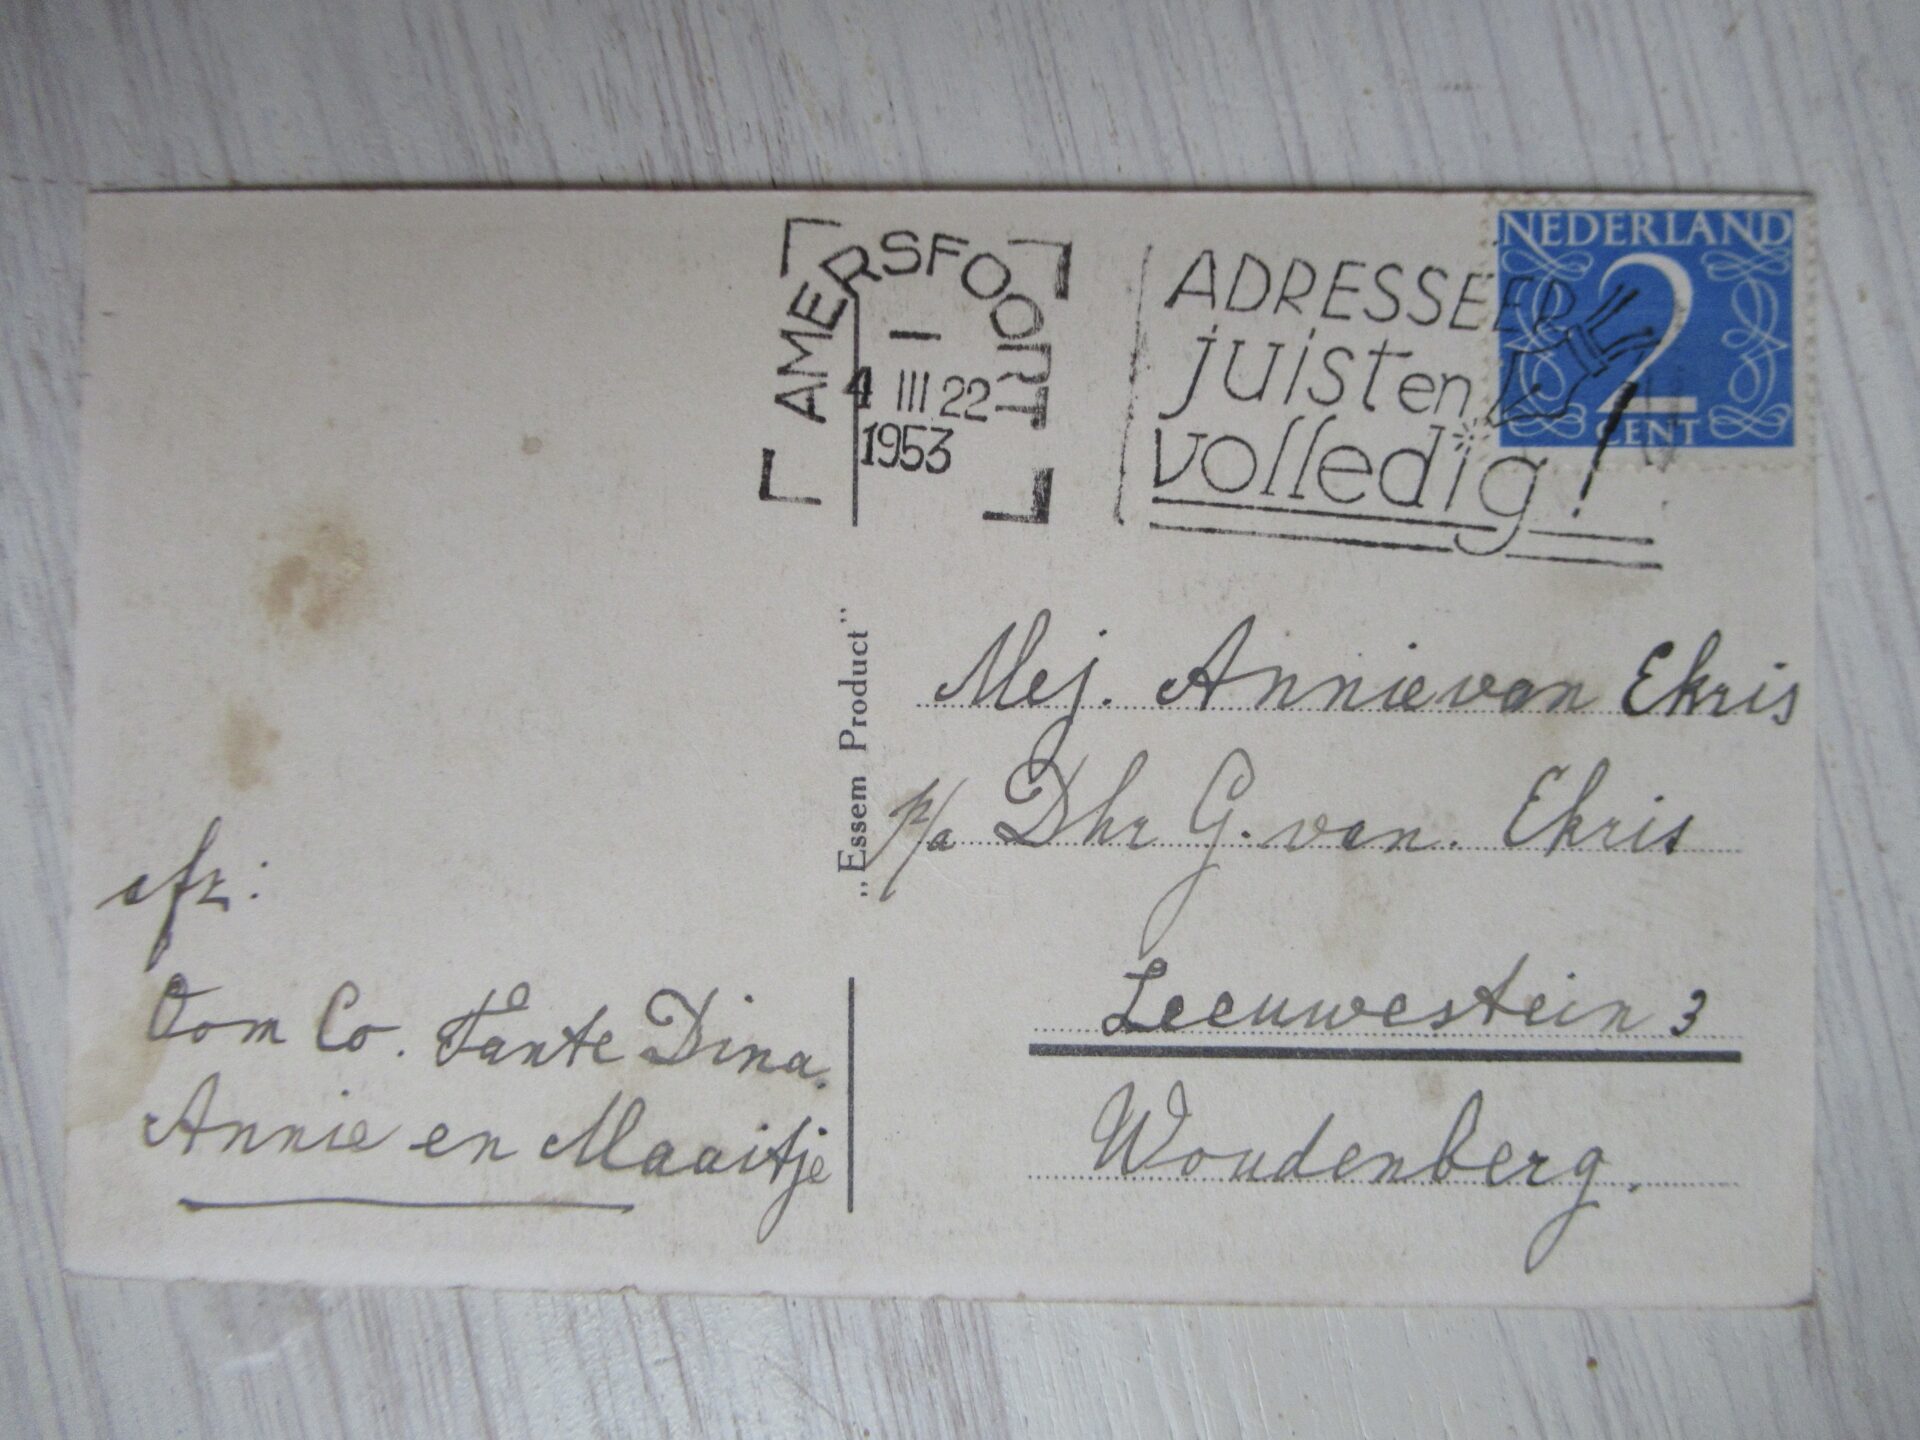 AMERSFOORT
1
4 III 22
1953
ADRESSEER
juist en
volledig!
NEDERLAND
2
CENT
„Essem Product”
Mej. Annie van Ekris
p/a Dhr G. van. Ekris
Leeuwestein 3
Woudenberg.
afz:
Oom Co. Tante Dina.
Annie en Maaitje